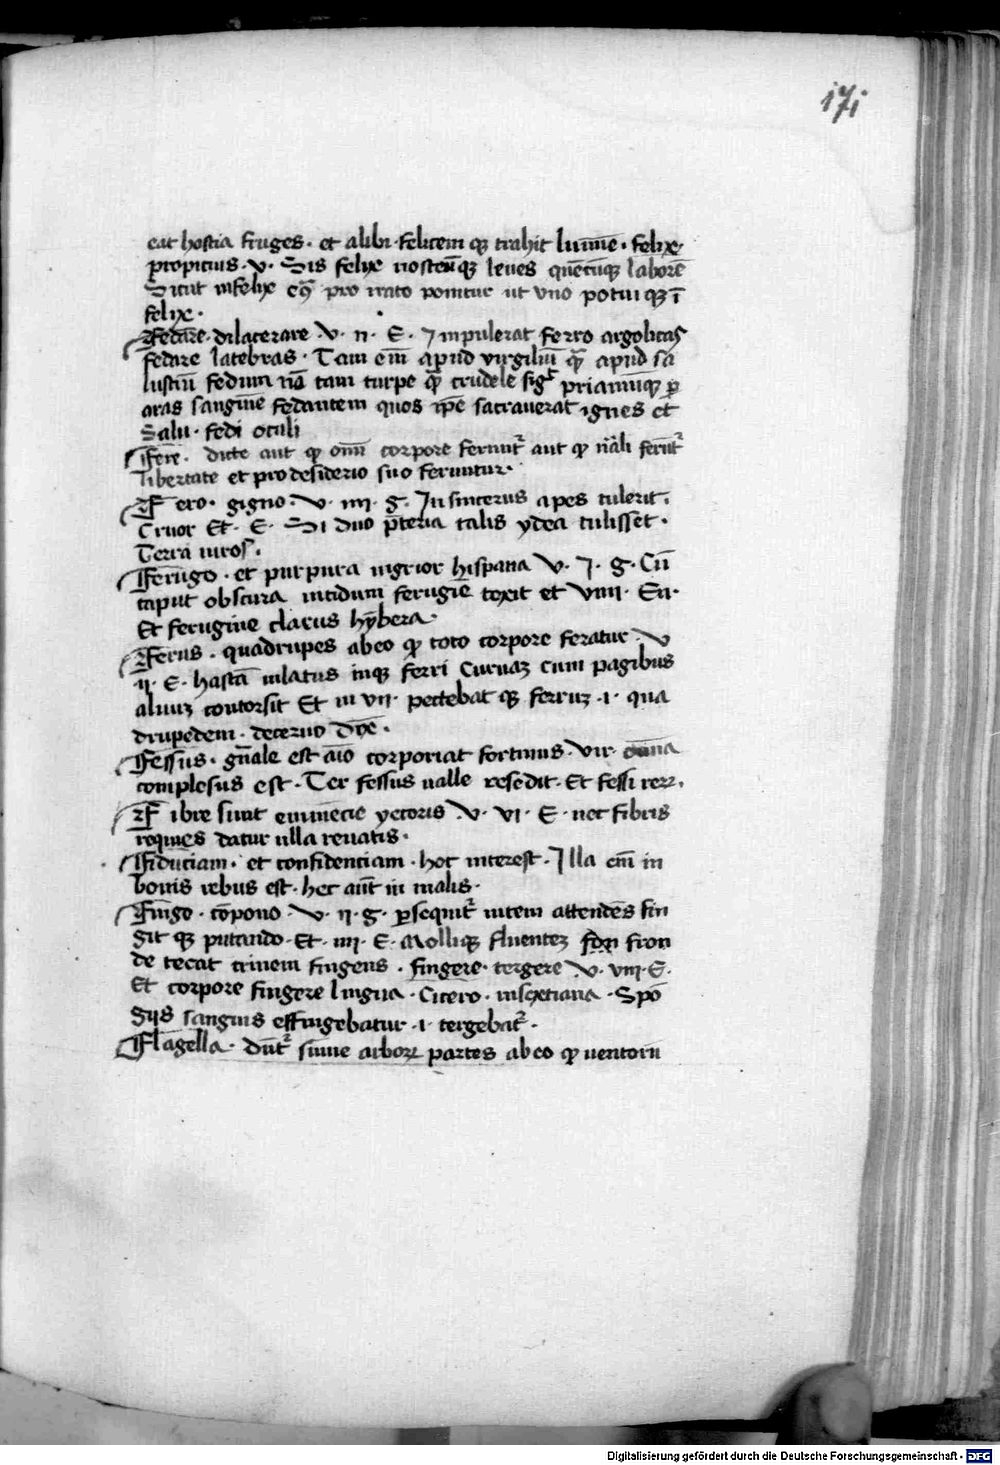 171
eat hostia fruges · et alibi · felicem qz trahit lumine · felix ·
propicius · v · Sis felix nostrumqz leues quecūqz laborē
Sicut infelix pro irato ponitur ut vno potui qz ī
felix ·
Fedare · dilacerare v · ii · E · Inpulerat ferro argolicas
fedare latebras · Tam em̄ apud virgiliū quā apud sa
lustiū fedum nō tam turpe quā crudele sigᵗ priamūqz p
aras sanguine fedantem quos ipe sacrauerat ignes et
Salu · fedi oculi
Fere · dicte aut qp omi corpore feruntᵗ aut qp nāli ferūtᵗ
libertate et pro desiderio suo feruntur ·
Fero · gigno · v · iiii · g · In sincerus apes tulerit ·
Cruor Et · E · Si duo pterea talis ydea tulisset ·
Terra uiros ·
Ferugo · et purpura nigrior hispana v · I · g · Cū
caput obscura nitidum ferugie texit et viiii · En ·
Et ferugine clarus hybera ·
Ferus · quadrupes ab eo qp toto corpore feratur · v
ii · E · hastā inlatus inqz ferri curuaz cum pagibus
aluuz contorsit Et in vii · pectebat qz ferruz · i · qua
drupedem ·
Fessus · gnāle est aīo corporiat fortimus · vir
complesus est · Ter fessus ualle resedit · Et fessi rerꝝ ·
Fibre sunt eminēcie yecoris v · vi · E · nec fibris
requies datur ulla renatis ·
Fiduciam · et confidenciam · hoc interest · Illa em̄ in
bonis rebus est · hec aut̄ in malis ·
Fingo · cōpono · v · ii · g · psequitᵗ uitem attendēs fin
git qz putando · Et · iiii · E · Mollıqz fluentez fron
de tecat crinem fingens · fingere · tergere v · viii · E ·
Et corpore fingere lingua · Cicero · in sextiana · Spō
giis sanguis effingebatur · i · tergebatᵗ ·
Flagella · dūtᵗ sūme arborꝝ partes ab eo qp uentorū
Digitalisierung gefördert durch die Deutsche Forschungsgemeinschaft · DFG